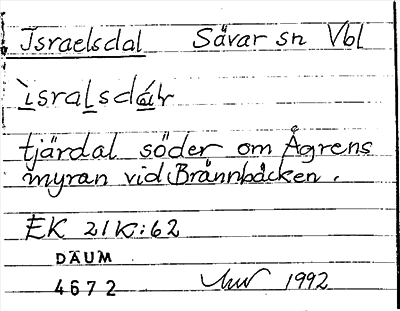 Israelsdal Sävar sn Vbl
ìsralsdálr
tjärdal söder om Ågrens
myran vid Brännbäcken.
EK 21K:62
DAUM
4672 1992